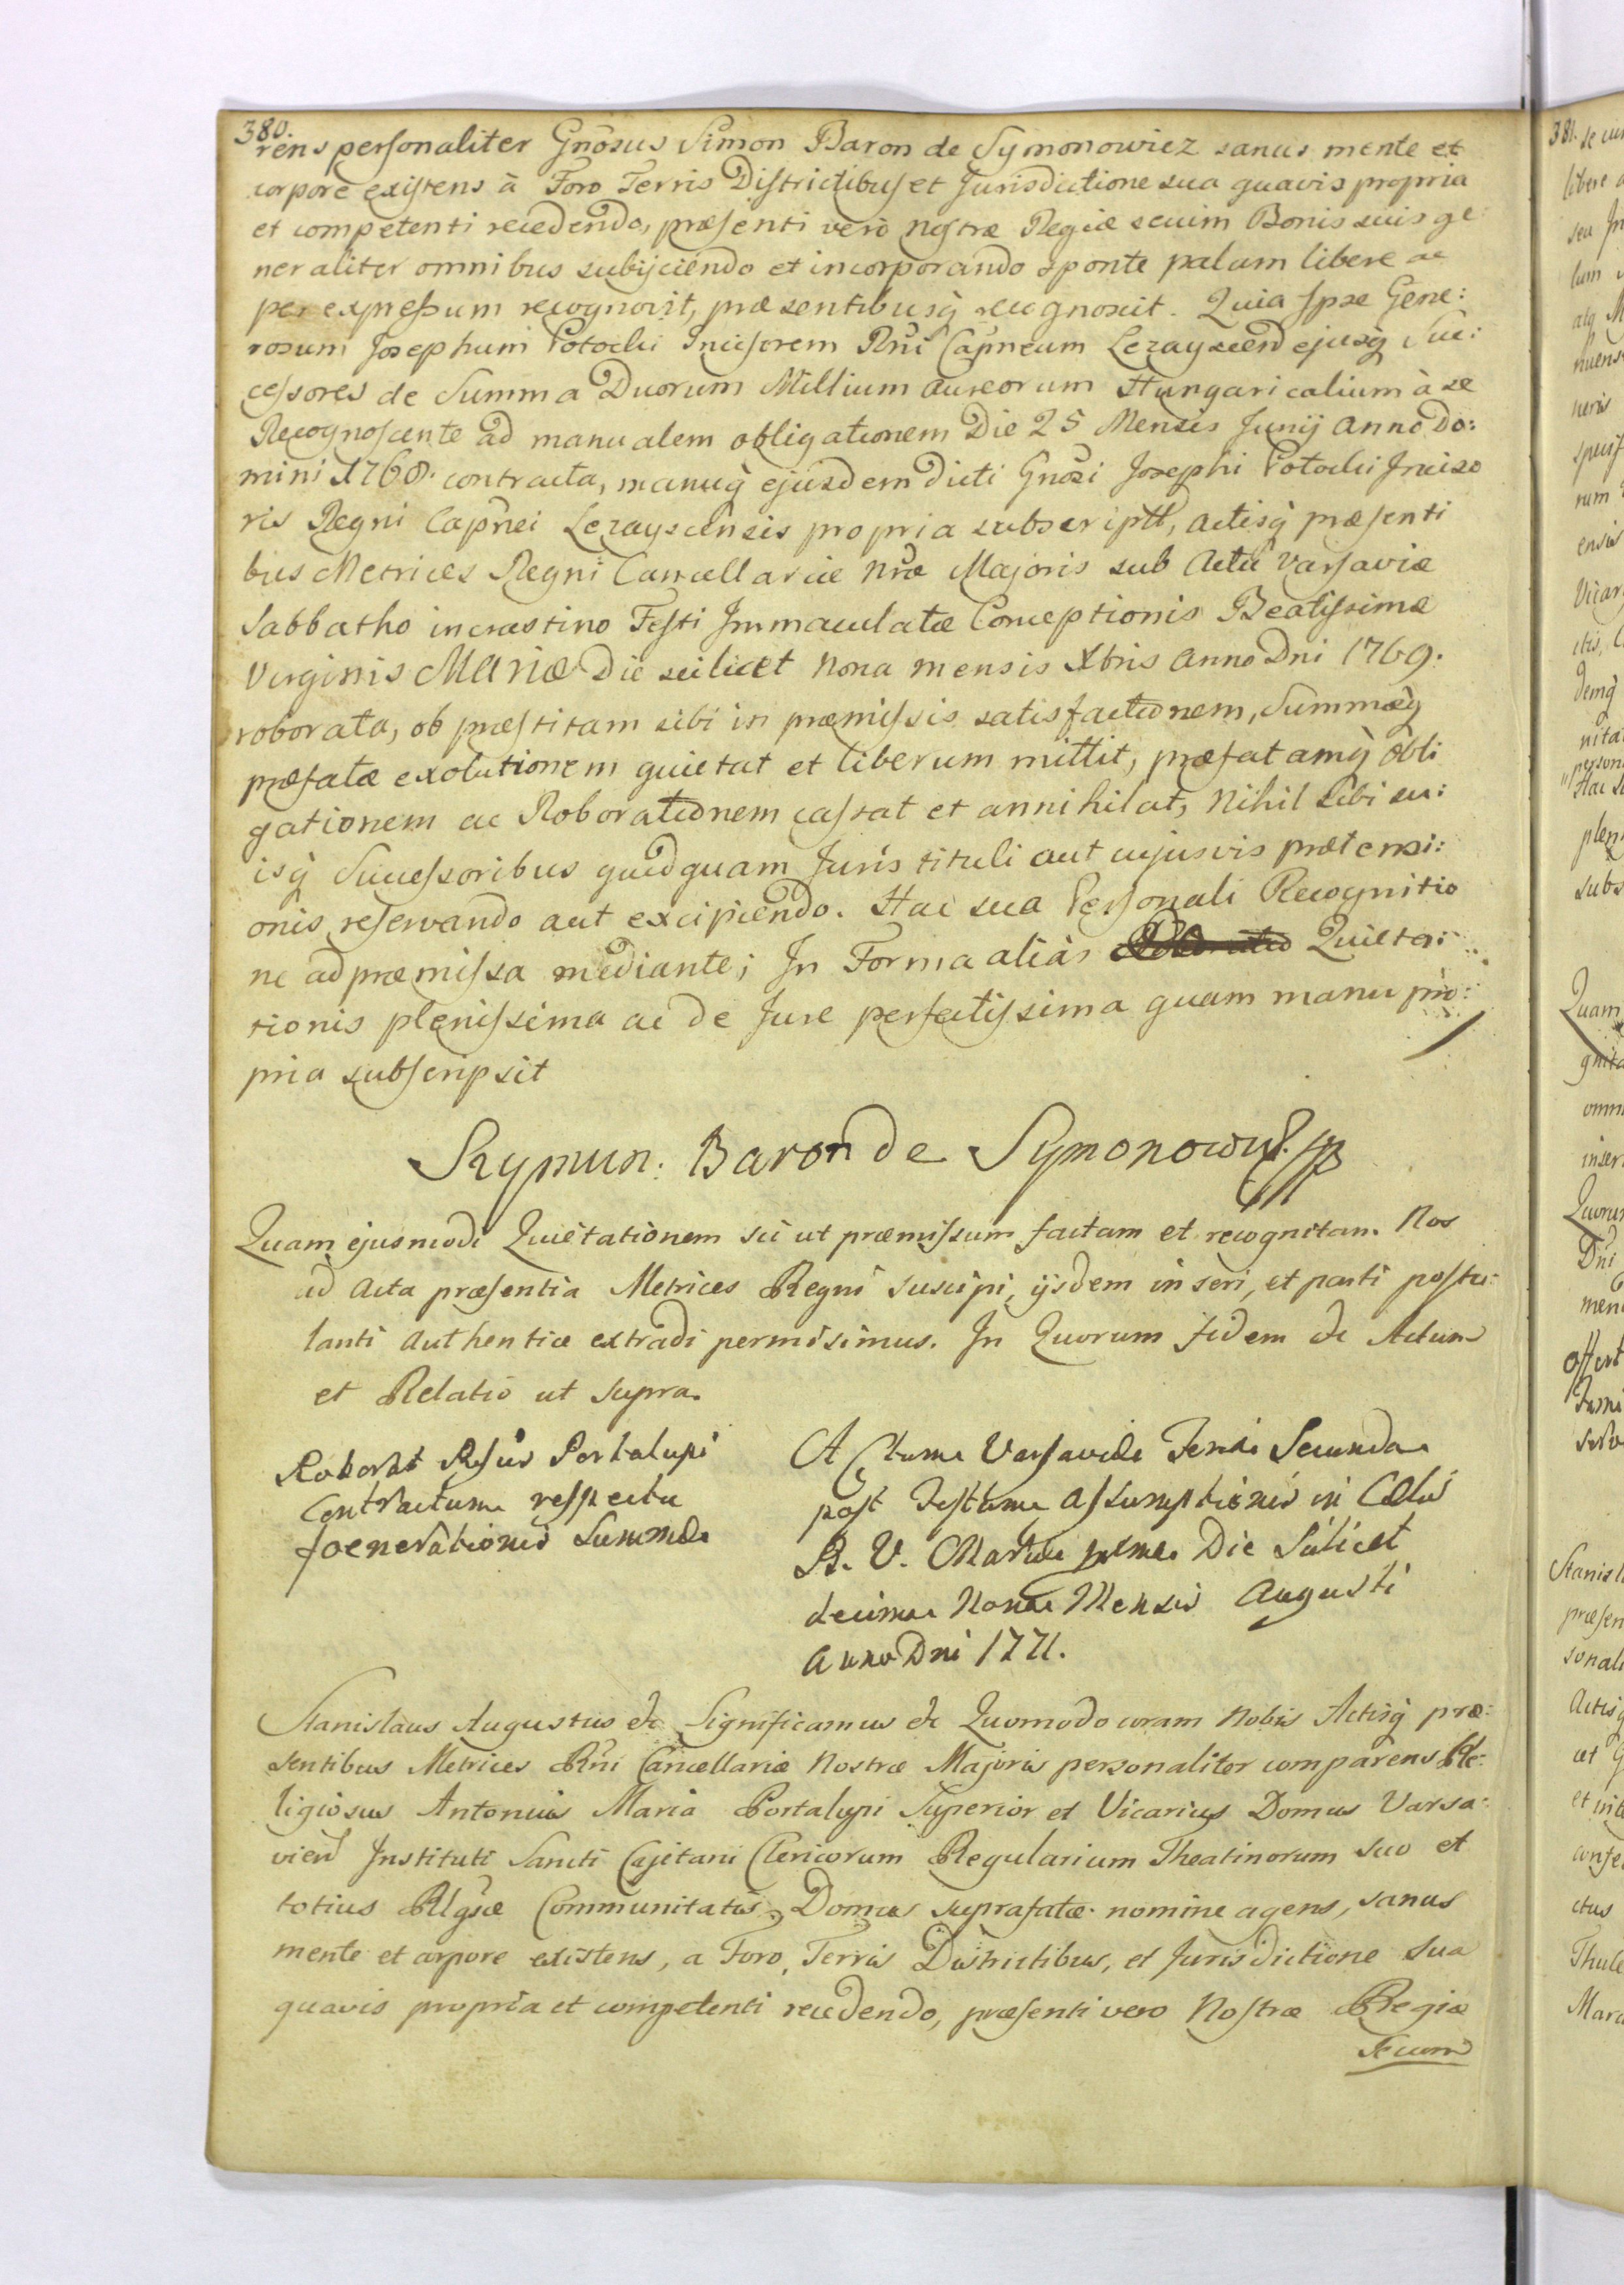 380.
rens personaliter Gnosus Simon Baron de Symonowicz sanus mente et
corpore existens à Foro Terris Districtibus et Jurisdictione sua quavis propria
et competenti recedendo, præsenti verò Nostræ Regiæ secum Bonis suis ge
neraliter omnibus subijciendo et incorporando sponte palam libere ac
per expressum recognovit, præsentibusq̀ recognoscit. Quia Ipse Gene:
rosum Josephum Potocki Incisorem Rñi Capneum Lezayscen ejusq̀ Suc:
cessores de Summa Duorum Millium aureorum Hungaricalium à se
Recognoscente ad manualem obligationem Die 25 Mensis Junij Anno Do:
mini 1768. contracta, manuq̀ ejusdem dicti Gnosi Josephi Potocki Inciso
ris Regni Capnei Lezayscensis propria subscriptt, actisq̀ præsenti
bus Metrices Regni Cancellariæ Nræ Majoris sub Actu Varsaviæ
Sabbatho incrastino Festi Immaculatæ Conceptionis Beatissimæ
Virginis Mariæ Die scilicet Nona mensis Xbris Anno Dni 1769.
roborata, ob præstitam sibi in præmissis satisfactionem, Summæq̀
præfatæ exolutionem quietat et liberum mittit, præfatamq̀ obli
gationem ac Roborationem cassat et annihilat, Nihil sibi su:
isq̀ Successoribus quidquam Juris tituli aut cujusvis prætensi:
onis reservando aut excipiendo. Hac sua Personali Recognitio
ne ad præmissa mediante; In Forma aliàs Quieta:
tionis plenissima ac de Jure perfectissima quam manu pro:
pria subscripsit
Szymun. Baron de Symonowicz mp
Quam ejusmodi Quietationem sic ut præmissum factam et recognitam Nos
ad Acta præsentia Metrices Regni suscipi, ijsdem inseri, et parti postu:
lanti authentice extradi permisimus. In Quorum fidem &c Actum
et Relatio ut supra.
Roborat Rssus Portalupi
Contractum respectu
foenerationis Summæ
Actum Varsaviæ Feria Secunda
post Festum Assumptionis in Cælis
B. V. Mariæ prxma Die Scilicet
decima Nona Mensis Augusti
Anno Dni 1771.
Stanislaus Augustus &c Significamus &c Quomodo coram Nobis Actisq̀ præ:
sentibus Metrices Rñi Cancellariæ Nostræ Majoris personaliter comparens Re:
ligiosus Antonius Maria Portalupi Superior et Vicarius Domus Varsa:
vien Instituti Sancti Cajetani Clericorum Regularium Theatinorum suo et
totius Rlgsæ Communitatis, Domus suprafatæ nomine agens, sanus
mente et corpore existens, a Foro, Terris Districtibus, et Jurisdictione sua
quavis propria et competenti recedendo, præsenti vero Nostræ Regiæ
Secum